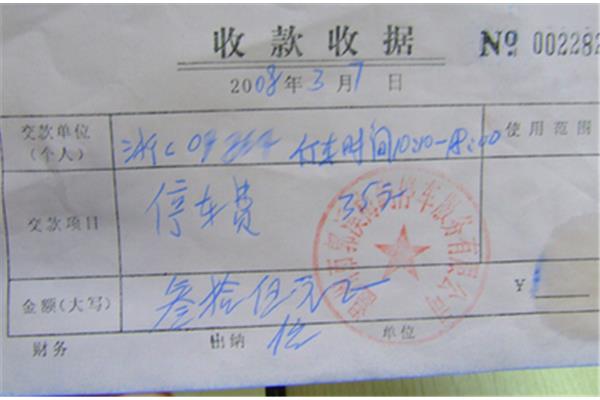 收款收据 № 002282
2008年3月7日
交款单位 浙C 停车时间10:00-18:00 使用范围
(个人)
交款项目 停车费 35元
金额(大写) 叁拾伍元正 ¥
财务 出纳 单位